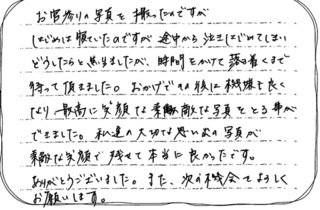 お宮参りの写真を撮ったのですが
はじめは寝ていたのですが途中から泣きはじめてしまい
どうしたらと思いましたが、時間をかけて落ち着くまで
待って頂きました。おかげでその後は機嫌も良く
なり最高に笑顔な素敵な写真をとる事が
できました。私達の大切な思い出の写真が
素敵な笑顔で残せて本当に良かったです。
ありがとうございました。また、次の機会でよろしく
お願いします。